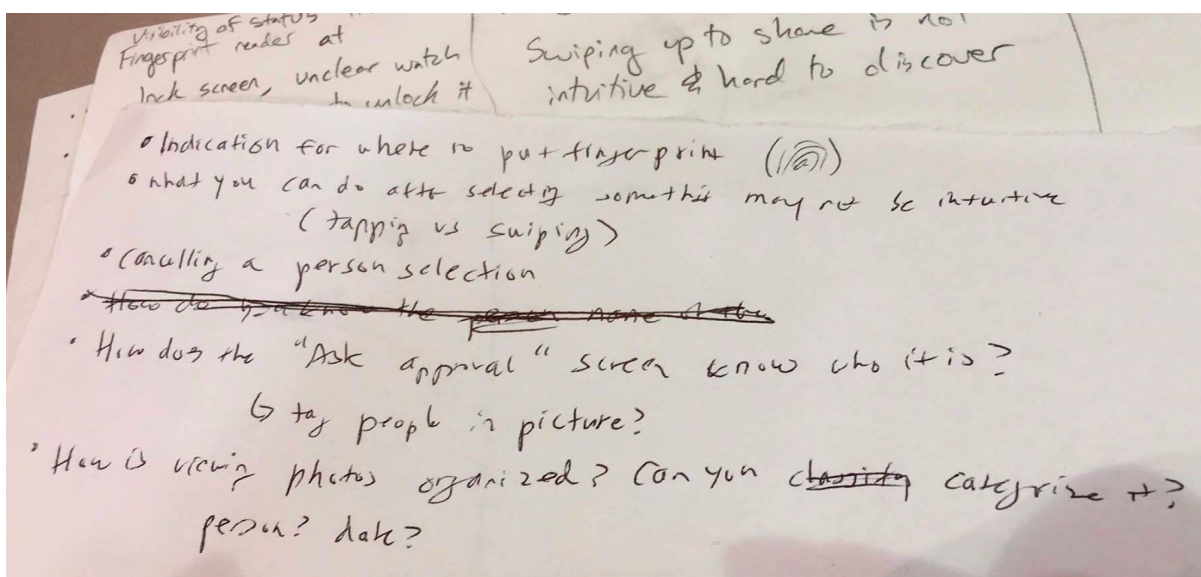 Visibility of status
Fingerprint reader at
lock screen, unclear watch
to unlock it
Swiping up to share is not
intuitive & hard to discover
• Indication for where to put fingerprint
• What you can do after selecting something may not be intuitive
(tapping vs swiping)
• Cancelling a person selection
• How do you know the person name of the
• How does the "Ask approval" screen know who it is?
↳ tag people in picture?
• How is viewing photos organized? Can you classify categorize it?
person? date?